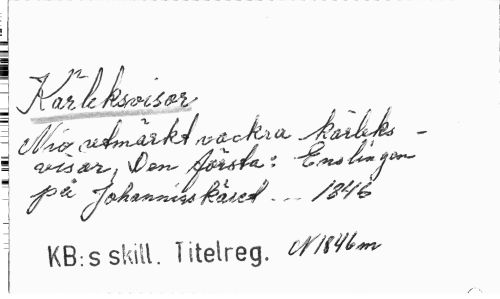 Kärleksvisor
Nio utmärkt vackra kärleks-
visor, Den första: Enslingen
på Johannisskäret ... 1846
KB:s skill. Titelreg. N1846m